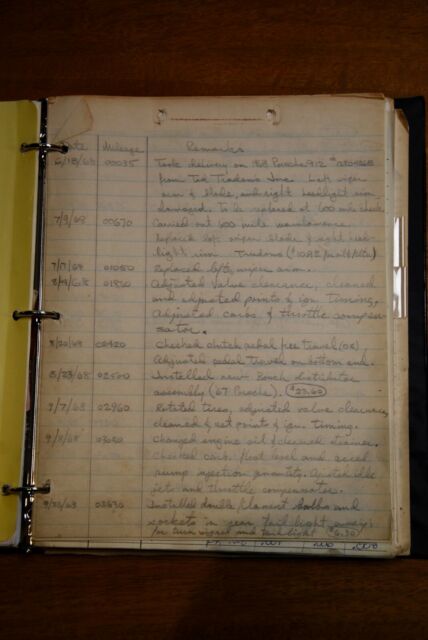 Date Mileage Remarks
6/18/68 00035 Took delivery on 1968 Porsche 912
from Ted Trudeau's Inc. Left wiper
arm & blade, and right headlight rim
damaged. To be replaced at 600 mile check.
7/9/68 00670 Carried out 600 mile maintenance.
Replaced left wiper blade & right head-
light rim.
01050 Replaced left wiper arm.
Adjusted valve clearance, cleaned
and adjusted points & ign. timing.
Adjusted carbs & throttle compen-
sator.
8/20/68 02420 Checked clutch pedal free travel (OK),
Adjusted pedal travel on bottom end.
8/23/68 02500 Installed new Bosch distributor
assembly (67 Porsche). $23.60
9/7/68 02960 Rotated tires, adjusted valve clearance,
cleaned & set points & ign. timing.
9/8/68 03050 Changed engine oil & cleaned strainer.
Checked carb. float level and accel
pump injection quantity. Adjusted idle
jets and throttle compensator.
03630 Installed double filament bulbs and
sockets in rear tail light assys.
for turn signal and tail light